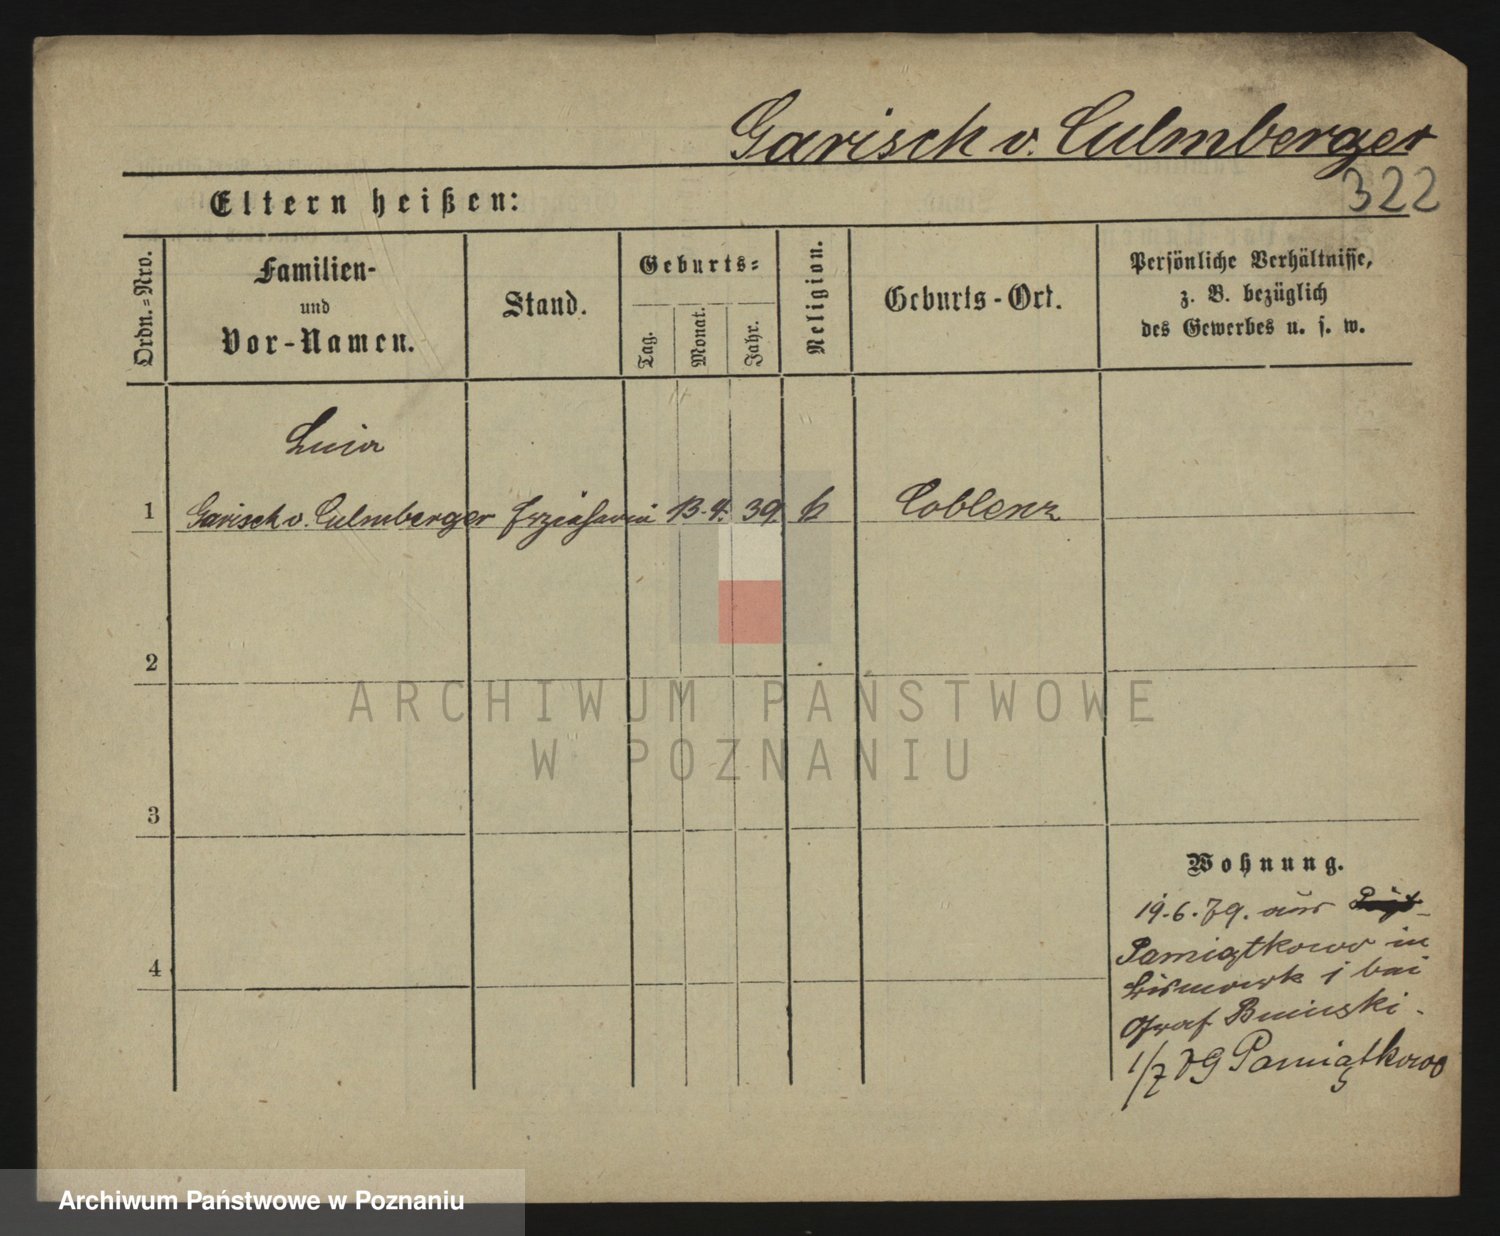 Garisch v. Culmberger
322
Eltern heißen:
Ordn.=Nro.
Familien-
und
Vor-Namen.
Stand.
Geburts=
Tag.
Monat.
Jahr.
Religion.
Geburts-Ort.
Persönliche Verhältnisse,
z. B. bezüglich
des Gewerbes u. s. w.
Lucia
1 Garisch v. Culmberger Erzieherin 13. 4. 39. k Coblenz
2
3
4
Wohnung.
19.6.79. aus
Pamiątkowo in
bei
Graf Bninski.
1/7 79 Pamiątkowo
ARCHIWUM PAŃSTWOWE
W POZNANIU
Archiwum Państwowe w Poznaniu